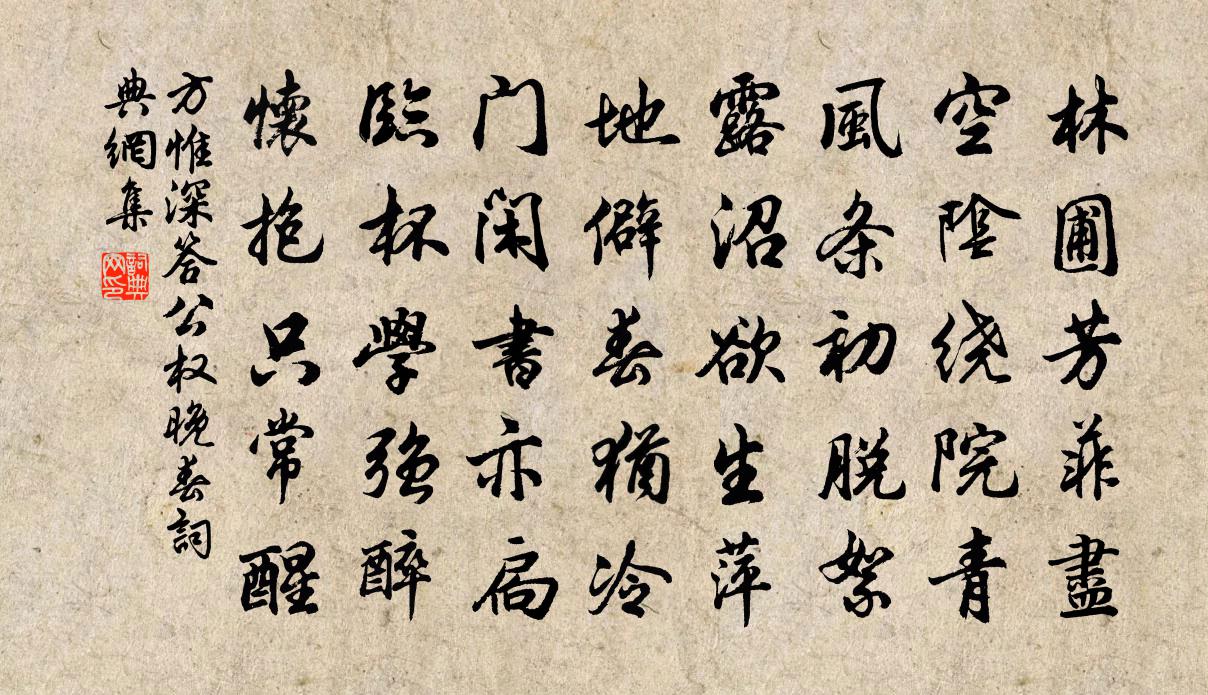 林圃芳菲盡
空陰绕院青
風条初脱絮
露沼欲生萍
地僻春猶冷
门闲書亦扃
臨杯學强醉
懷抱只常醒
方惟深答公权晚春詞
典網集
詞典
网印